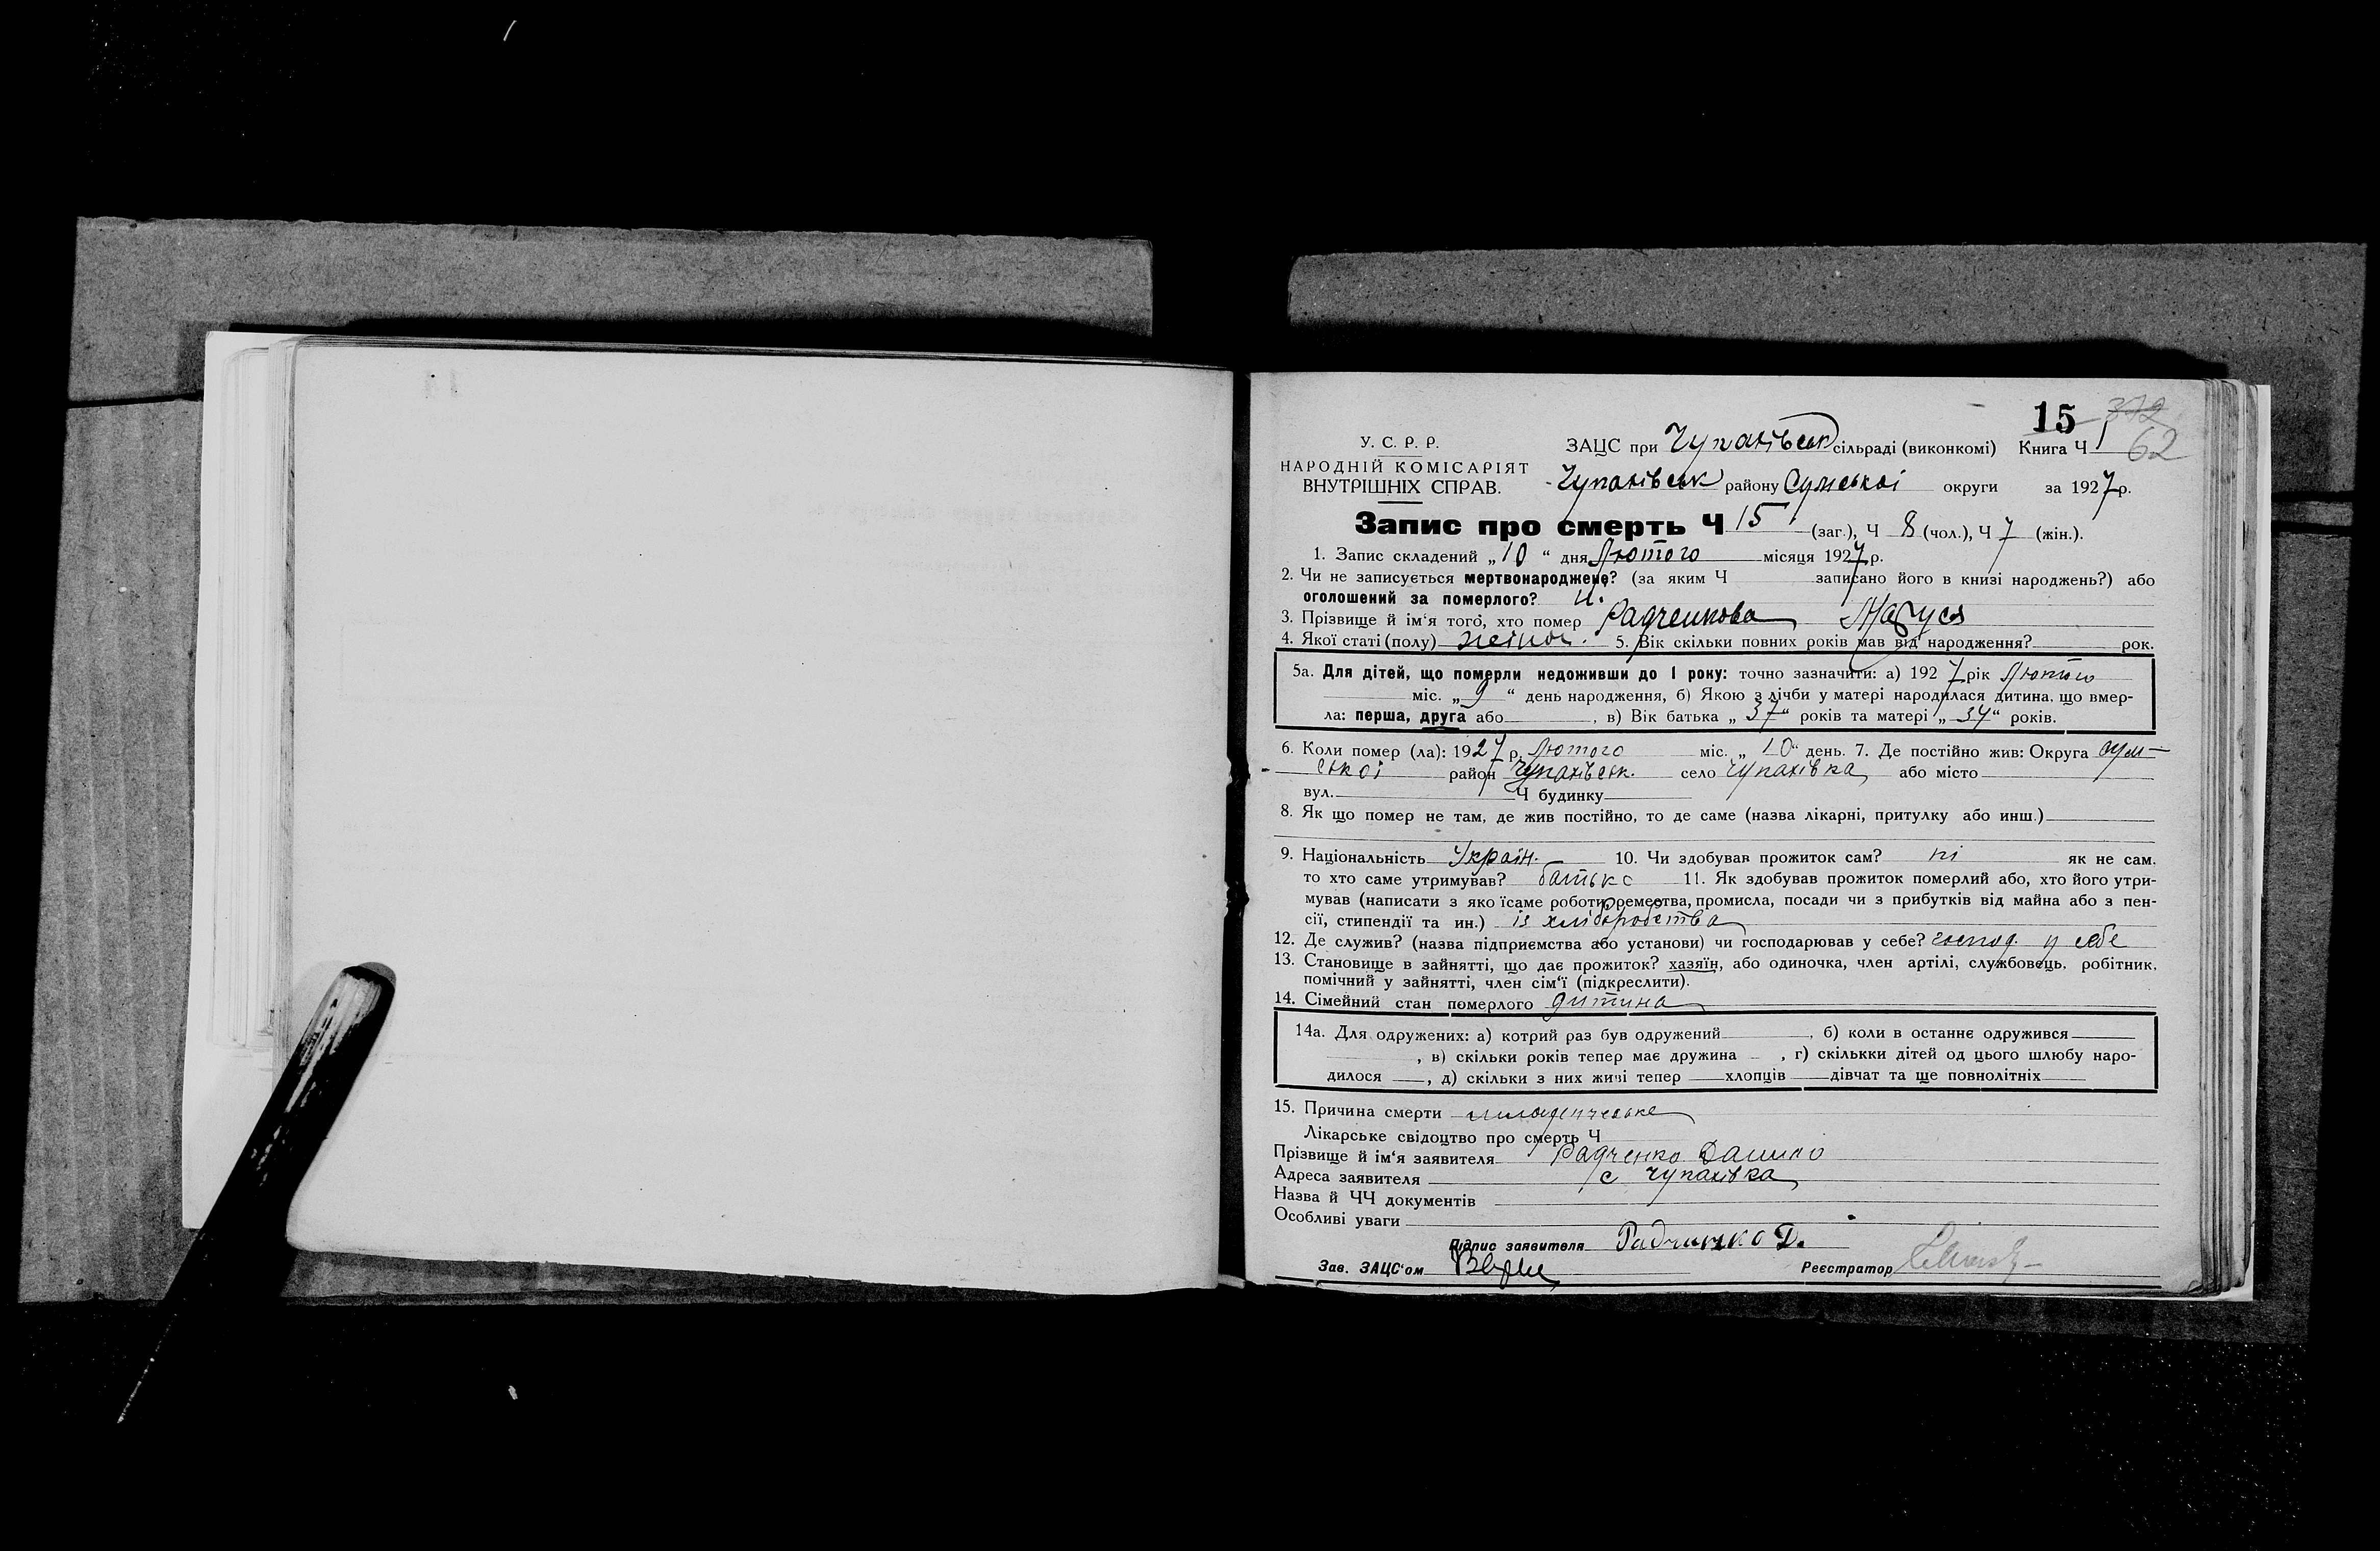 15 372
У. С. Р. Р. ЗАЦС при Чупахівськ сільраді (виконкомі) Книга Ч 1 62
НАРОДНІЙ КОМІСАРІЯТ
ВНУТРІШНІХ СПРАВ. Чупахівськ району Сумської округи за 1927 р.
Запис про смерть Ч 15 (заг.), Ч 8 (чол.), Ч 7 (жін.).
1. Запис складений „10“ дня Лютого місяця 1927 р.
2. Чи не записується мертвонароджене? (за яким Ч записано його в книзі народжень?) або
оголошений за померлого? н.
3. Прізвище й ім‘я того, хто помер Радченкова Маруся
4. Якої статі (полу) жіноч. 5. Вік скільки повних років мав від народження? рок.
5а. Для дітей, що померли недоживши до 1 року: точно зазначити: а) 1927 рік Лютого
міс. „9“ день народження, б) Якою з лічби у матері народилася дитина, що вмер-
ла: перша, друга або , в) Вік батька „37“ років та матері „34“ років.
6. Коли помер (ла): 1927 р. Лютого міс. „10“ день. 7. Де постійно жив: Округа сум-
ської район Чупахівськ. село Чупахівка або місто
вул. Ч будинку
8. Як що помер не там, де жив постійно, то де саме (назва лікарні, притулку або инш.)
9. Національність Україн. 10. Чи здобував прожиток сам? ні як не сам,
то хто саме утримував? батько 11. Як здобував прожиток померлий або, хто його утри-
мував (написати з яко їсаме роботи, ремества, промисла, посади чи з прибутків від майна або з пен-
сії, стипендії та ин.) із хліборобства
12. Де служив? (назва підприємства або установи) чи господарював у себе? господ. у себе
13. Становище в зайнятті, що дає прожиток? хазяїн, або одиночка, член артілі, службовець, робітник,
помічний у зайнятті, член сім‘ї (підкреслити).
14. Сімейний стан померлого дитина
14а. Для одружених: а) котрий раз був одружений , б) коли в останнє одружився
, в) скільки років тепер має дружина , г) скількки дітей од цього шлюбу наро-
дилося , д) скільки з них живі тепер хлопців дівчат та ще повнолітніх
15. Причина смерти младенческе
Лікарське свідоцтво про смерть Ч
Прізвище й ім‘я заявителя Радченко Данило
Адреса заявителя с Чупахівка
Назва й ЧЧ документів
Особливі уваги
Підпис заявителя Радченко Д.
Зав. ЗАЦС‘ом Реєстратор